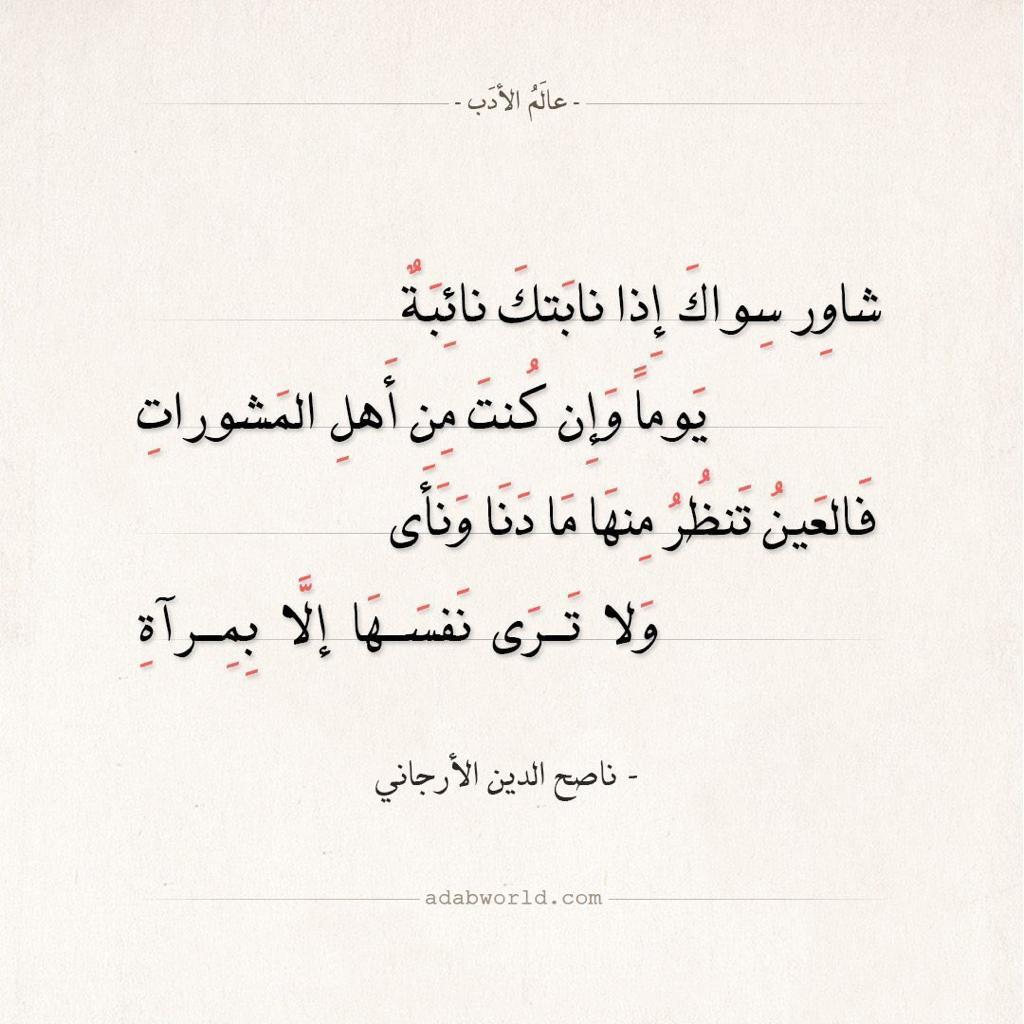 - عالَمُ الأدَب -
شاوِر سِواكَ إِذا نابَتكَ نائِبَةٌ
يَوماً وَإِن كُنتَ مِن أَهلِ المَشوراتِ
فَالعَينُ تَنظُرُ مِنهَا مَا دَنَا وَنَأَى
وَلا تَـرَى نَفسَـهَا إلَّا بِمِـرآةِ
- ناصح الدين الأرجاني
adabworld.com